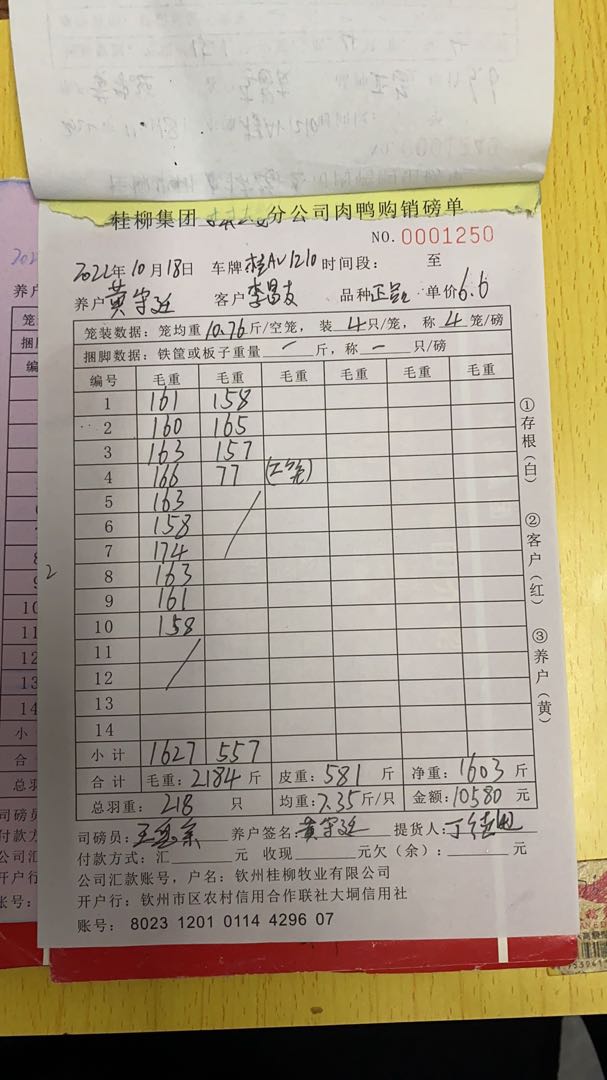 桂柳集团 分公司肉鸭购销磅单
NO. 0001250
2022年10月18日 车牌 桂AV1210 时间段： 至
养户 黄守廷 客户 李昌友 品种 正品 单价 6.6
笼装数据：笼均重 10.76 斤/空笼， 装 4 只/笼， 称 4 笼/磅
捆脚数据：铁筐或板子重量 — 斤，称 — 只/磅
编号 毛重 毛重 毛重 毛重 毛重 毛重
1 161 158
2 160 165
3 163 157
4 166 77 (2笼)
5 163
6 158
7 174
8 163
9 161
10 158
11
12
13
14
小计 1627 557
合计 毛重：2184 斤 皮重：581 斤 净重：1603 斤
总羽重：218 只 均重：7.35 斤/只 金额：10580 元
司磅员： 养户签名：黄守廷 提货人：
付款方式：汇 元 收现 元欠（余）： 元
公司汇款账号，户名：钦州桂柳牧业有限公司
开户行：钦州市区农村信用合作联社大垌信用社
账号： 8023 1201 0114 4296 07
①存根（白）
②客户（红）
③养户（黄）